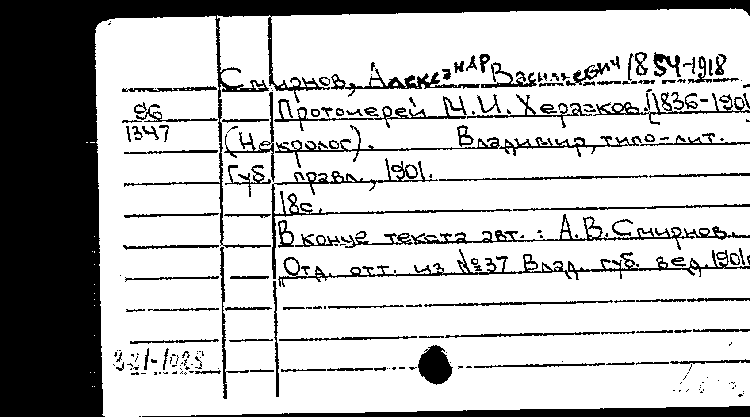 Смирнов, Александр Васильевич 1854-1918
96 Протоиерей М.И. Херасков. [1836-1901
1347 (Некролог). Владимир, типо-лит.
Губ. правл., 1901.
18с.
В конце текста авт.: А.В.Смирнов.
"Отд. отт. из №37 Влад. губ. вед. 1901г
321-1028